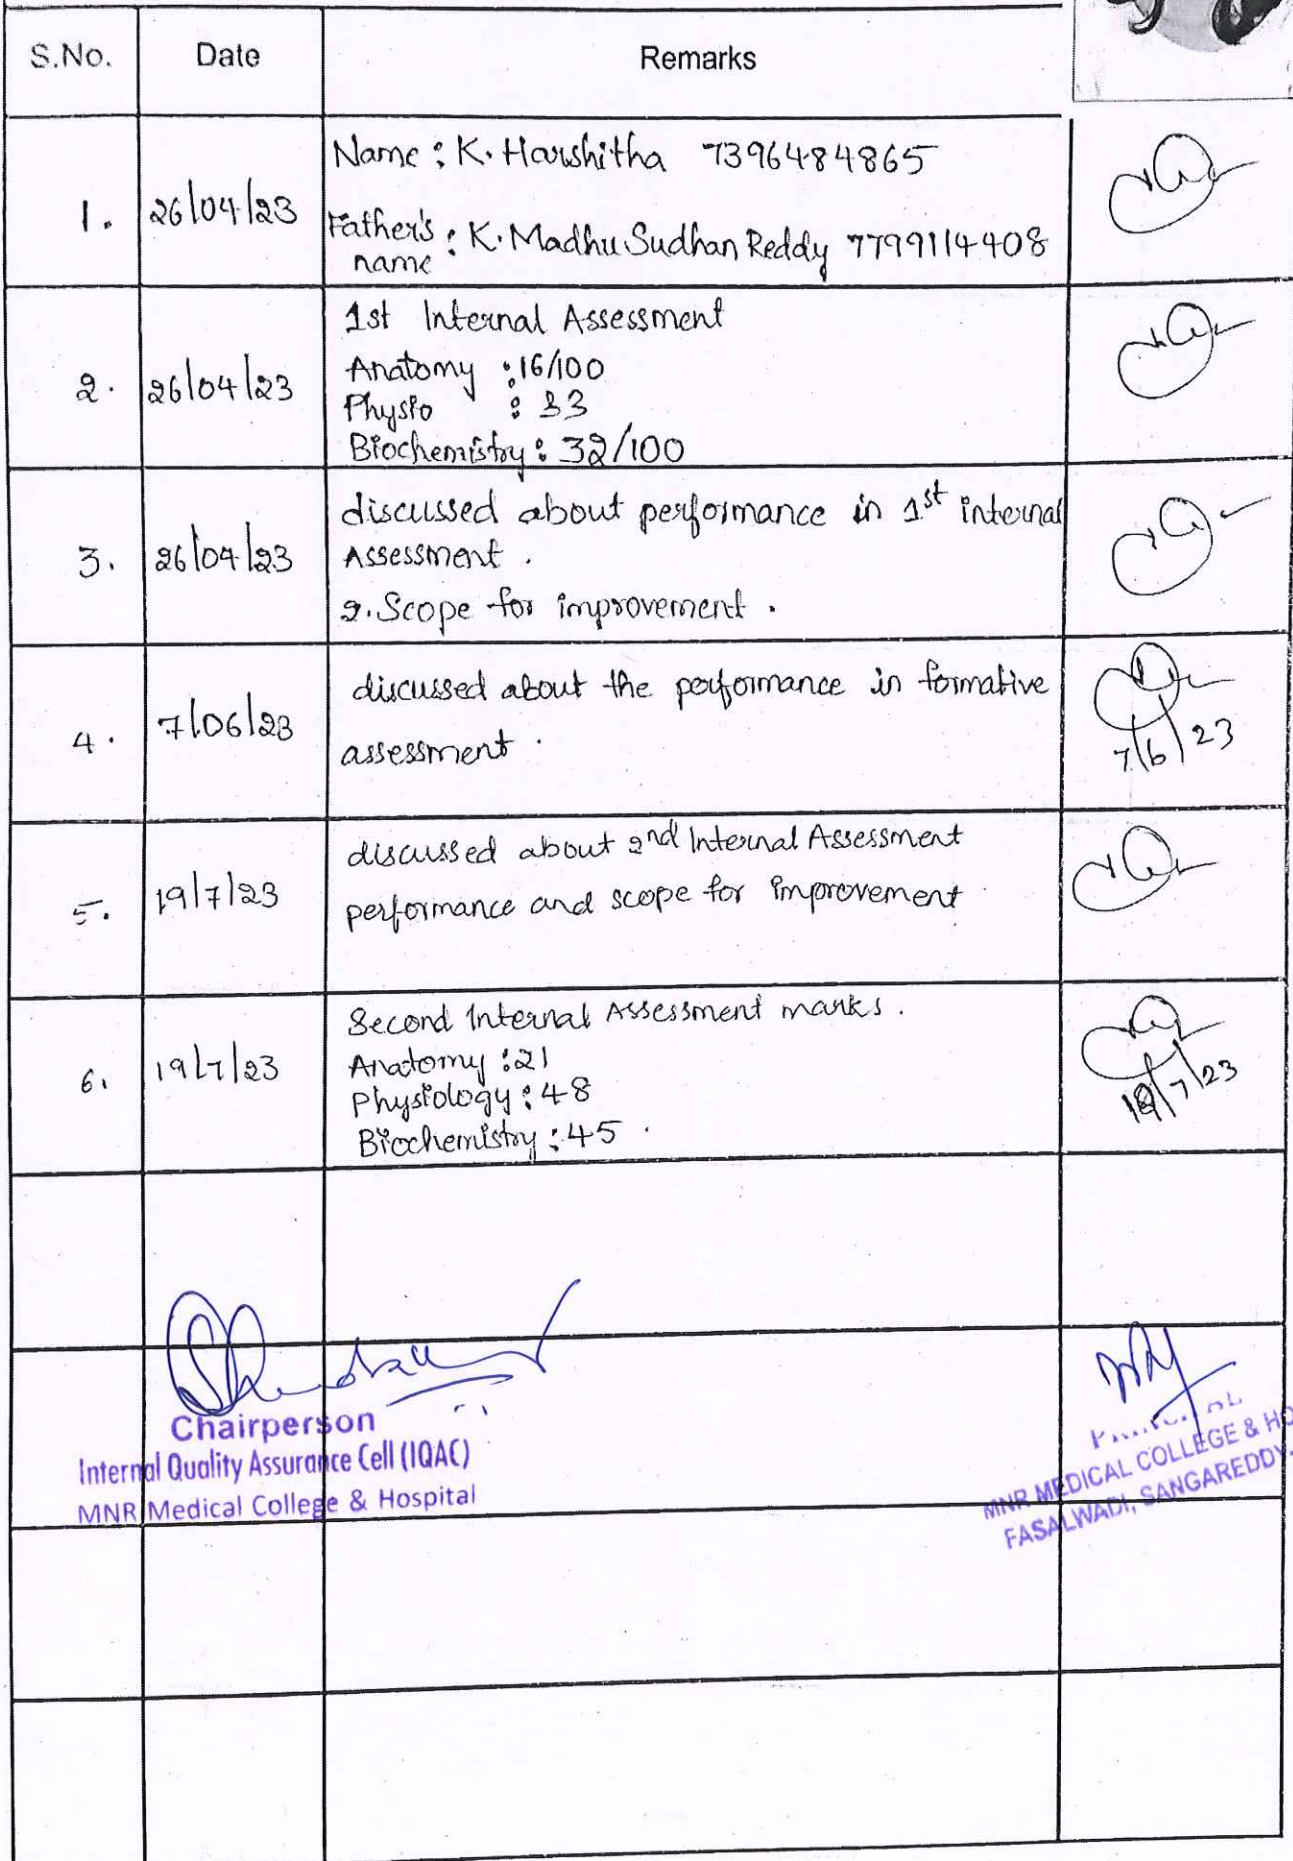 S.No. Date Remarks
1. 26/04/23 Name : K. Harshitha 7396484865
Father's name : K. Madhu Sudhan Reddy 7799114408
2. 26/04/23 1st Internal Assessment
Anatomy : 16/100
Physio : 33
Biochemistry : 32/100
3. 26/04/23 discussed about performance in 1st internal
Assessment .
2. Scope for improvement .
4. 7/06/23 discussed about the performance in formative
assessment .
7/6/23
5. 19/7/23 discussed about 2nd Internal Assessment
performance and scope for improvement
6. 19/7/23 Second Internal Assessment marks .
Anatomy : 21
Physiology : 48
Biochemistry : 45 .
19/7/23
Chairperson
Internal Quality Assurance Cell (IQAC)
MNR Medical College & Hospital
MNR MEDICAL COLLEGE & HO
FASALWADI, SANGAREDDY.